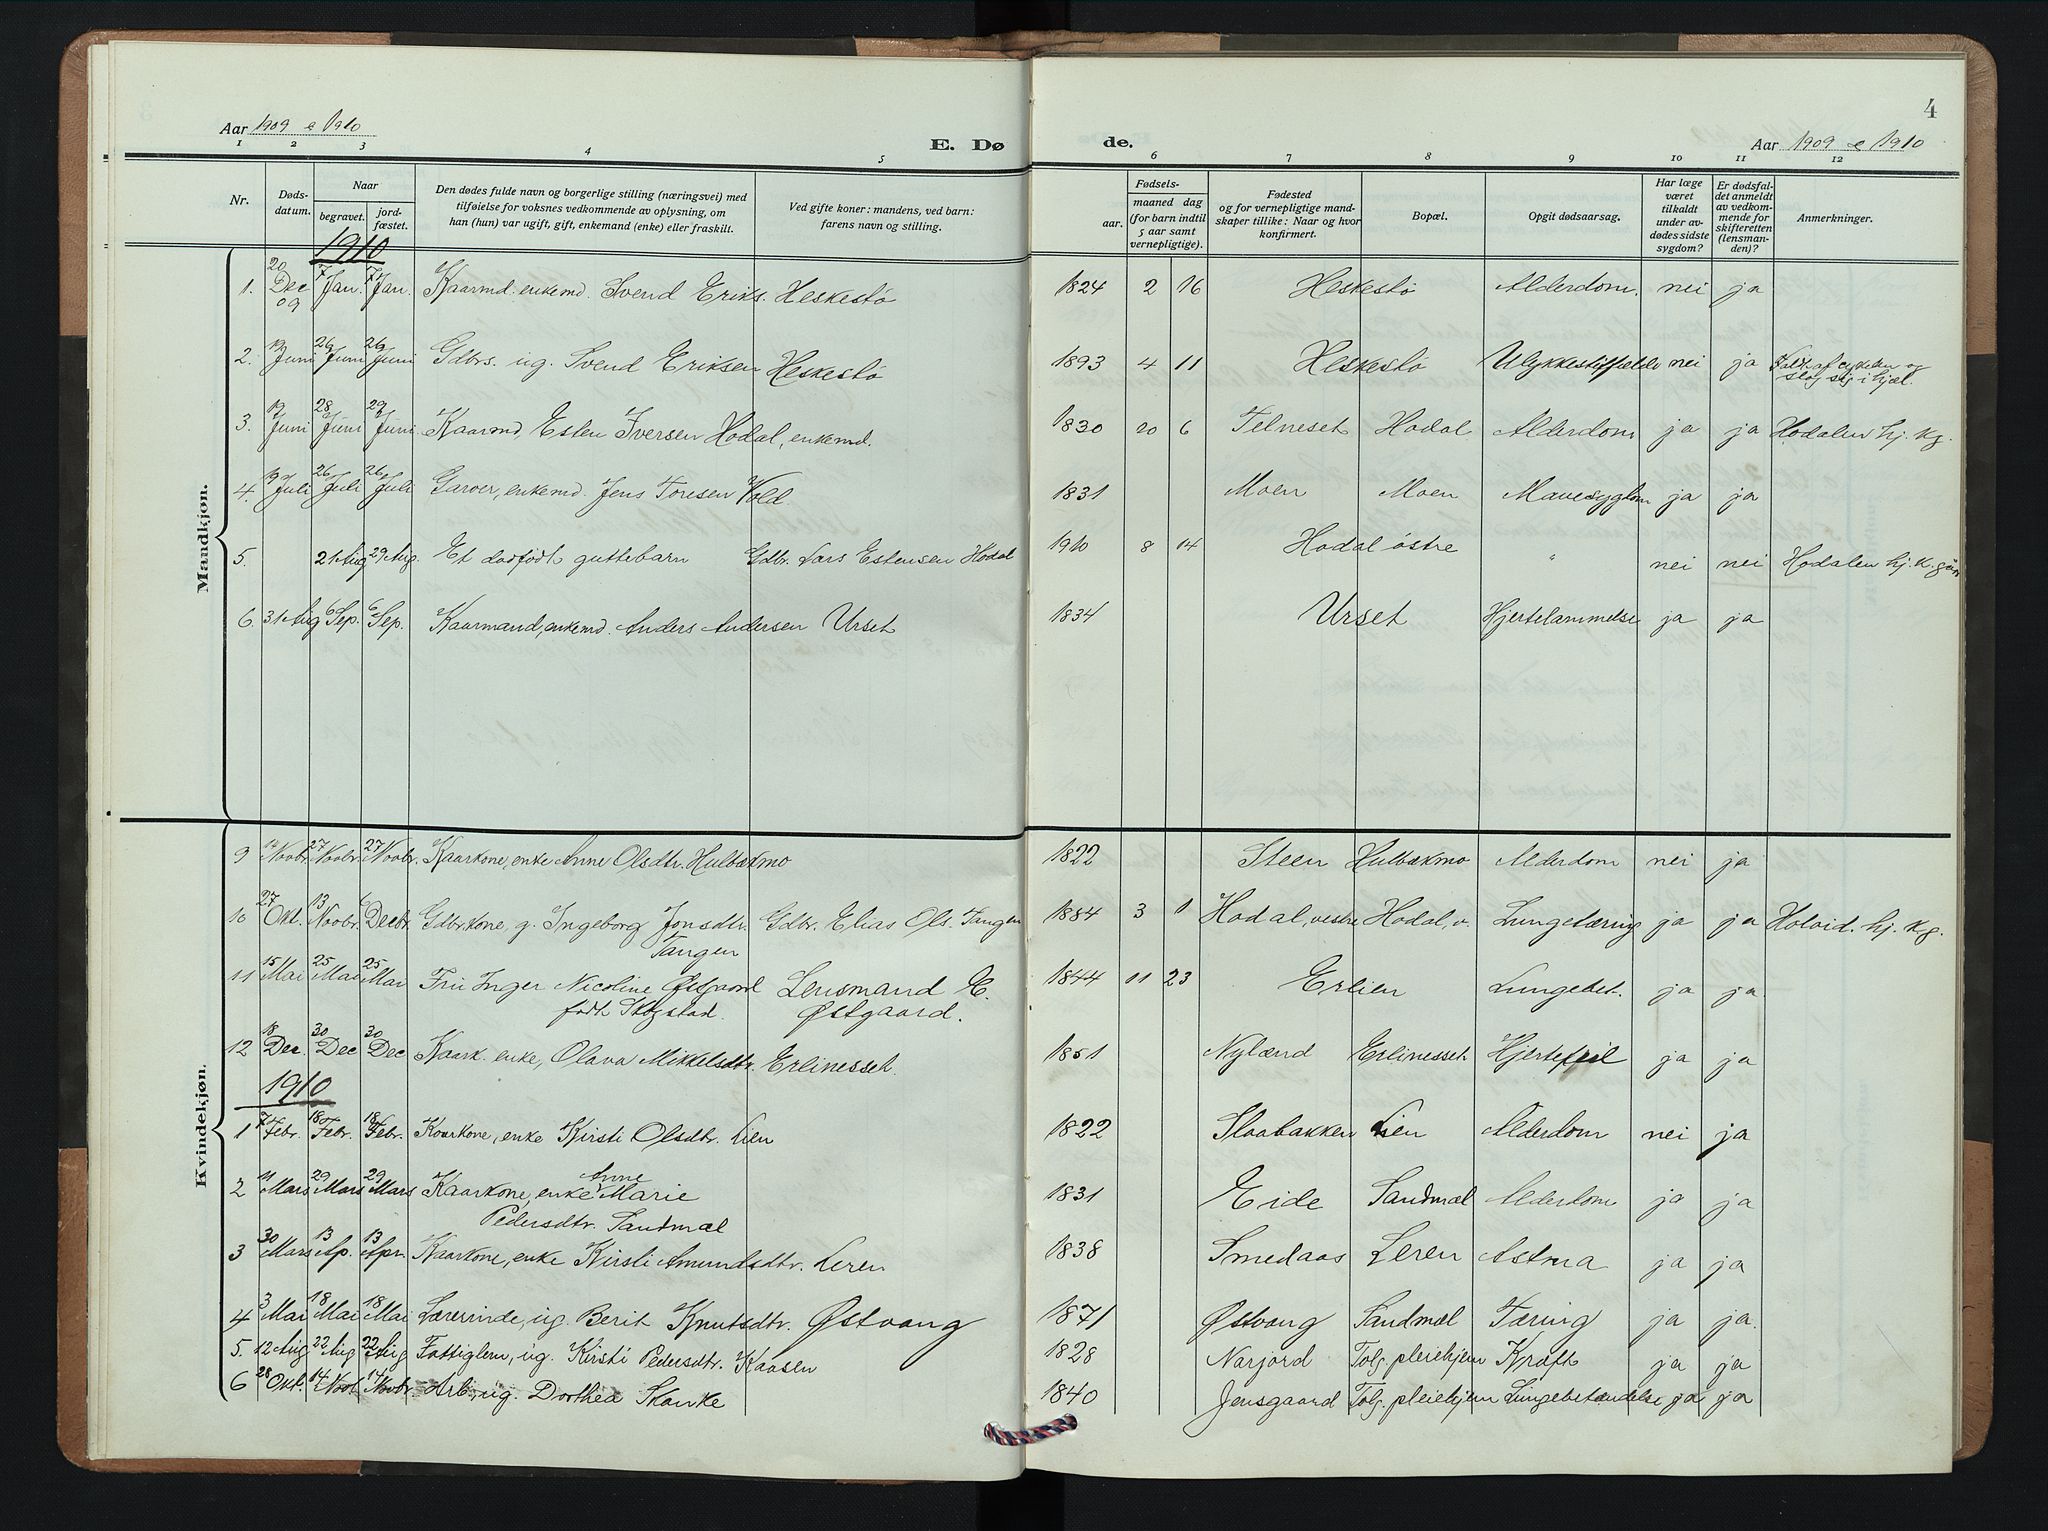 4
Aar 1909 & 1910
E. Dø
de.
Aar 1909 & 1910
1 2 3 4 5 6 7 8 9 10 11 12
Nr.
Døds-
datum.
Naar
begravet.
jord-
fæstet.
Den dødes fulde navn og borgerlige stilling (næringsvei) med
tilføielse for voksnes vedkommende av oplysning, om
han (hun) var ugift, gift, enkemand (enke) eller fraskilt.
Ved gifte koner: mandens, ved barn:
farens navn og stilling.
Fødsels-
aar.
maaned dag
(for barn indtil
5 aar samt
vernepligtige).
Fødested
og for vernepligtige mand-
skaper tillike: Naar og hvor
konfirmert.
Bopæl.
Opgit dødsaarsag.
Har læge
været
tilkaldt
under av-
dødes sidste
sygdom?
Er dødsfal-
det anmeldt
av vedkom-
mende for
skifteretten
(lensman-
den)?
Anmerkninger.
Mandkjøn.
1910
1. 20 Dec 09 7 Jan. 7 Jan. Kaarmd. enkemd. Svend Eriks. Heskestø 1824 2 16 Heskestø Alderdom. nei ja
2. 19 Juni 26 Juni 26 Juni Gdbrs. ug. Svend Eriksen Heskestø 1893 4 11 Heskestø Ulykkestilfælde nei ja Faldt af cykelen og
slog sig i hjæl.
3. 19 Juni 28 Juni 29 Juni Kaarmd. Esten Iversen Hodal, enkemd. 1830 20 6 Telneset Hodal Alderdom ja ja Hodalen hj. kg.
4. 19 Juli 26 Juli 26 Juli Garver, enkemd. Jens Toresen Vold. 1831 Moen Moen Mavesygdom ja ja
5. 21 Aug 29 Aug. Et dødfødt guttebarn Gdbr. Lars Estensen Hodal 1910 8 14 Hodal østre " nei nei Hodalen hj. k.
6. 31 Aug 6 Sep. 6 Sep. Kaarmand, enkemd. Anders Andersen Urset 1834 Urset Hjertelammelse ja ja
Kvindekjøn.
9 Novbr. 27 Novbr. 27 Novbr. Kaarkone, enke Anne Olsdtr. Hulbækmo 1822 Steen Hulbækmo Alderdom nei ja
10 27 Okt. 13 Novbr. 6 Decbr. Gdbr.kone, g. Ingeborg Jonsdtr. Gdbr. Elias Ols. Tangen 1884 3 1 Hodal, vestre Hodal, v. Lungetæring ja ja Holøid. hj. kg.
Tangen
11 15 Mai 25 Mai 25 Mai Fru Inger Nicoline Østgaard Lensmand E. 1844 11 23 Erlien Lungebet. ja ja
født Skogstad. Østgaard.
12 18 Dec. 30 Dec 30 Dec Kaark. enke, Olava Mikkelsdtr. Erlinesset. 1851 Nylænd Erlinesset Hjertefeil ja ja
1910
1 7 Febr. 18 Febr. 18 Febr. Kaarkone, enke Kirsti Olsdtr. Lien 1822 Slaabakken Lien Alderdom nei ja
2 11 Mars 29 Mars 29 Mars Kaarkone, enke Anne Marie 1831 Eide Sandmæl Alderdom ja ja
Pedersdtr. Sandmæl
3 30 Mars 13 Ap. 13 Apr. Kaarkone, enke Kirsti Amundsdtr. Leren 1838 Smedaas Leren Astma ja ja
4 3 Mai 18 Mai 18 Mai Lærerinde, ug. Berit Knutsdtr. Østvang 1871 Østvang Sandmæl Tæring ja ja.
5. 12 Aug 22 Aug 22 Aug Fattiglem, ug. Kirsti Pedersdtr. Kaasen 1828 Narjord Tolg. pleiehjem Kræft ja ja
6 28 Okt. 14 Novl 14 Novbr. Arb., ug. Dorthea Skanke 1840 Jensgaard Tolg. pleiehjem Lungebetændelse ja ja